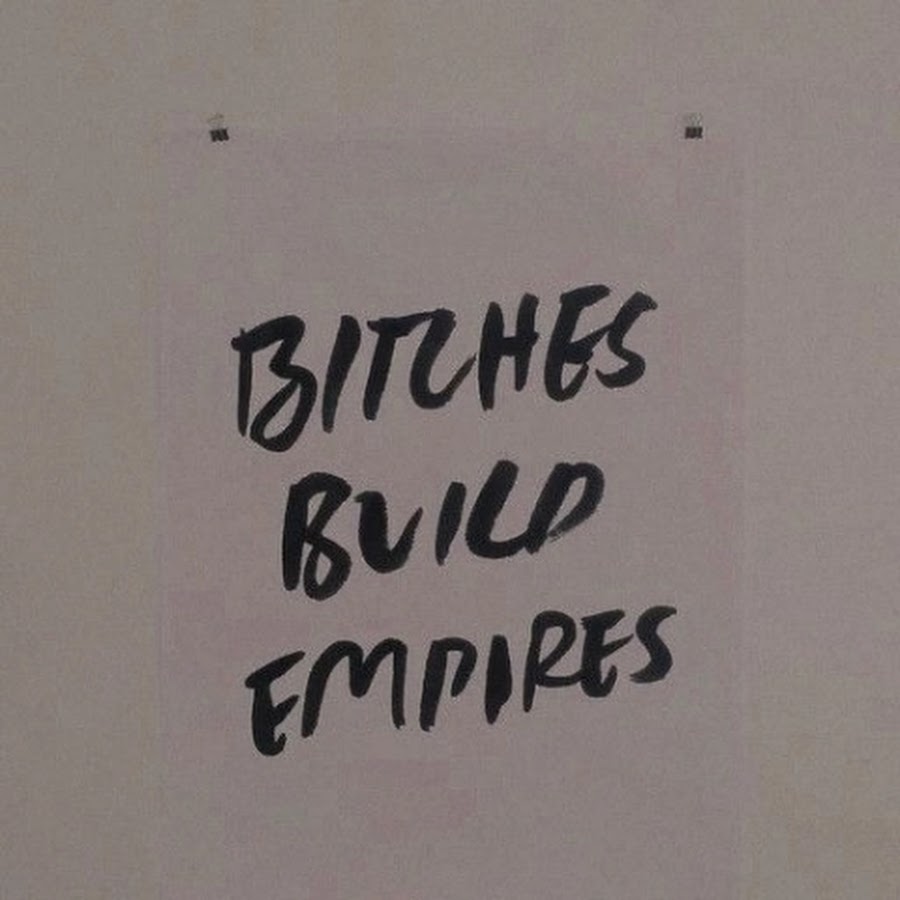 BITCHES
BUILD
EMPIRES